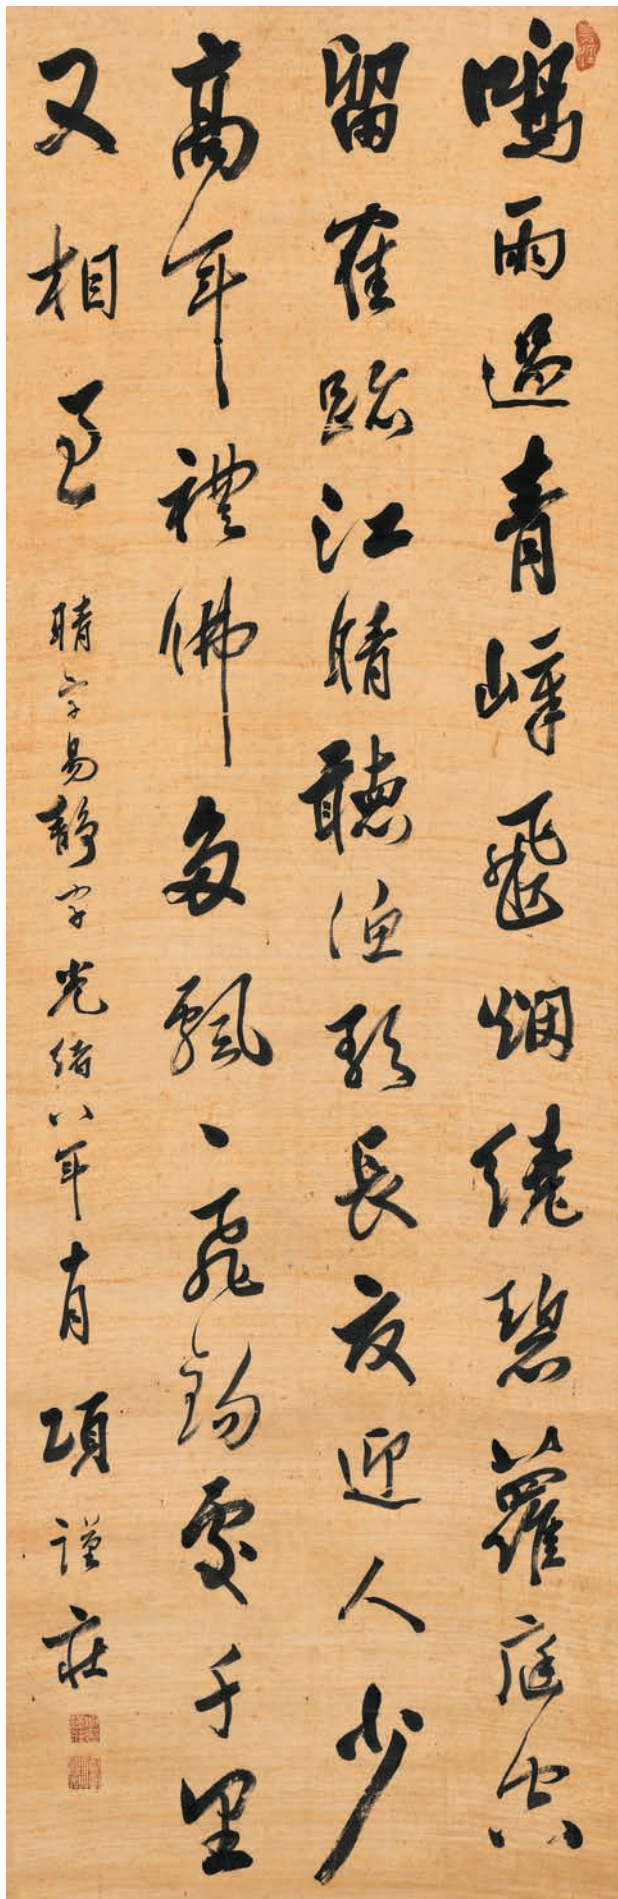 鳴雨過青嶂飛烟繞碧蘿庭空
留隺跡江晴聽漁歌長夜迎人少
高年禮佛多飄、飛錫處千里
又相過　晴字易靜字光緒八年十月項謹莊